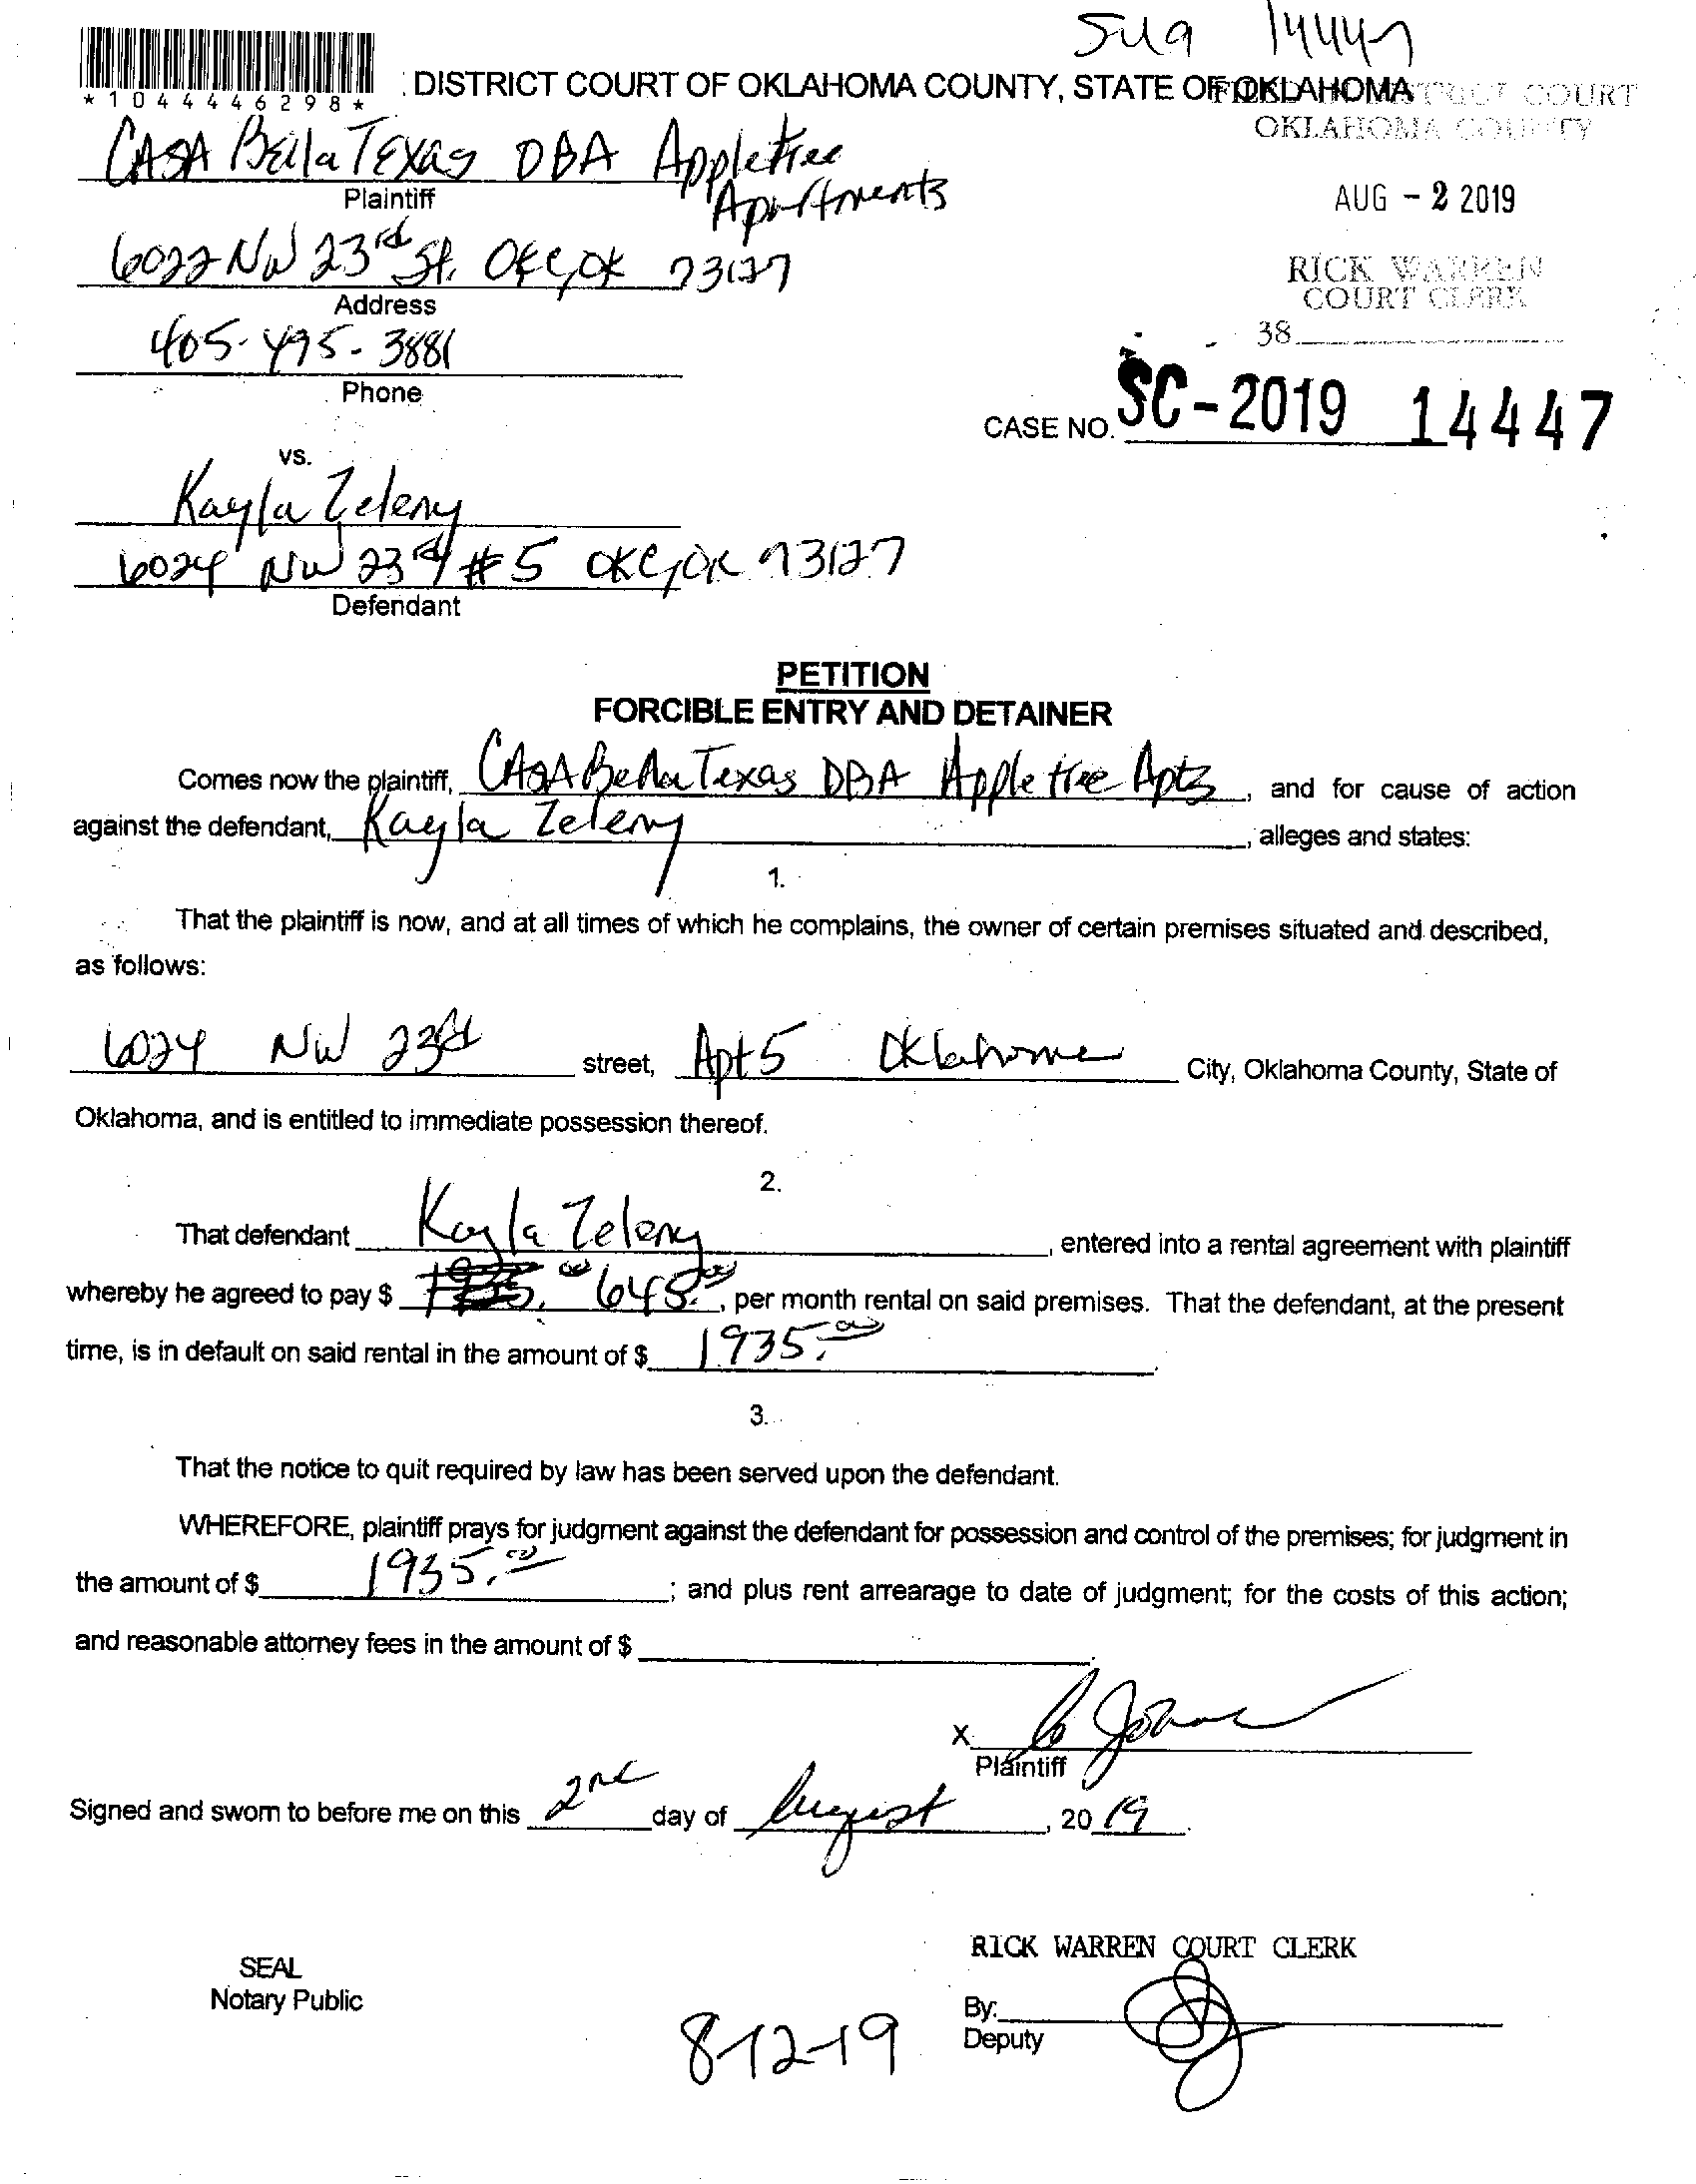 14447
*1044446298*
DISTRICT COURT OF OKLAHOMA COUNTY, STATE OF OKLAHOMA
FILED IN DISTRICT COURT
OKLAHOMA COUNTY
CASA Bella Texas DBA Appletree
Apartments
Plaintiff
AUG - 2 2019
6022 NW 23rd St. OKC, OK 73127
Address
RICK WARREN
COURT CLERK
405-495-3881
38
Phone
CASE NO. SC-2019 14447
vs.
Kayla Zeleny
6024 NW 23rd #5 OKC, OK 73127
Defendant
PETITION
FORCIBLE ENTRY AND DETAINER
Comes now the plaintiff, CASA Bella Texas DBA Appletree Apts, and for cause of action
against the defendant, Kayla Zeleny, alleges and states:
1.
That the plaintiff is now, and at all times of which he complains, the owner of certain premises situated and described,
as follows:
6024 NW 23rd street, Apt 5 Oklahoma City, Oklahoma County, State of
Oklahoma, and is entitled to immediate possession thereof.
2.
That defendant Kayla Zeleny, entered into a rental agreement with plaintiff
whereby he agreed to pay $ 645.00, per month rental on said premises. That the defendant, at the present
time, is in default on said rental in the amount of $ 1935.00.
3.
That the notice to quit required by law has been served upon the defendant.
WHEREFORE, plaintiff prays for judgment against the defendant for possession and control of the premises; for judgment in
the amount of $ 1935.00; and plus rent arrearage to date of judgment; for the costs of this action;
and reasonable attorney fees in the amount of $
X
Plaintiff
Signed and sworn to before me on this 2nd day of August, 2019.
RICK WARREN COURT CLERK
SEAL
Notary Public
By:
Deputy
8-12-19